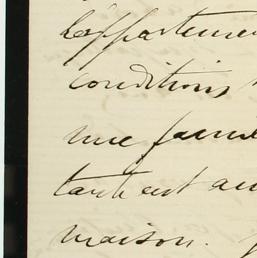 l'appartement
conditions
une famil
tant est au
maison.